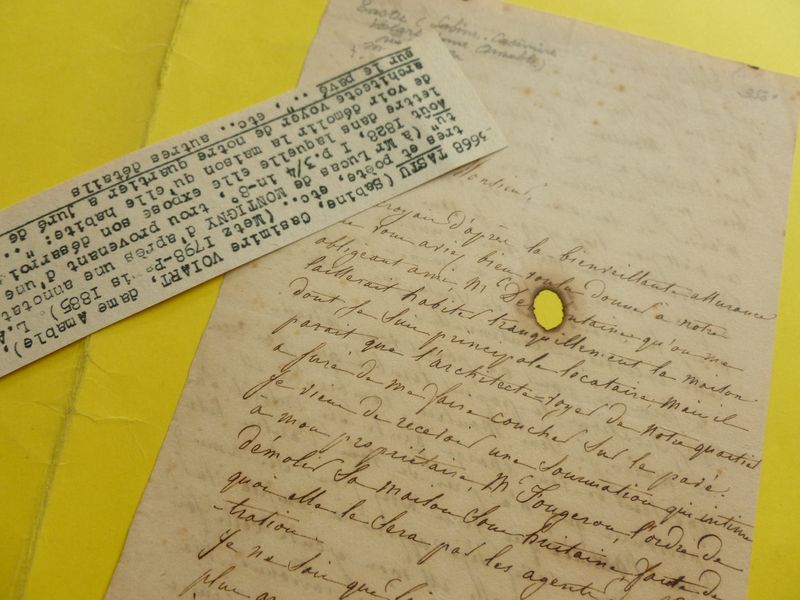 3668 TASTU (Sabine, Casimire VOIART, dame Amable),
poète, etc.. (Metz 1798-P
1885). L.A
tres et
tu" (à Mr Lucas de MONTIGNY d'après une annotat
Août 1828, 1 p.3/4 in-8°, trou provenant d'une
lettre dans laquelle elle expose son désarroi
de voir démolir la maison qu'elle habite: "..
architecte voyer de notre quartier a juré de
sur le pavé ...", etc.. autres détails
Sabine, Casimire
Monsieur,
croyais d'après la bienveillante assurance
que vous aviez bien voulu donner à notre
obligeant ami, Mr De fontaine, qu'on me
laisserait habiter tranquillement la maison
dont je suis principale locataire, mais il
parait que l'architecte-voyer de notre quartier
a juré de me faire coucher sur le pavé.
Je viens de recevoir une sommation qui intime
à mon propriétaire, Mr Fougerou, l'ordre de
démolir sa maison sous huitaine, faute de
quoi elle le sera par les agents
-tration.
Je ne sais que
plus